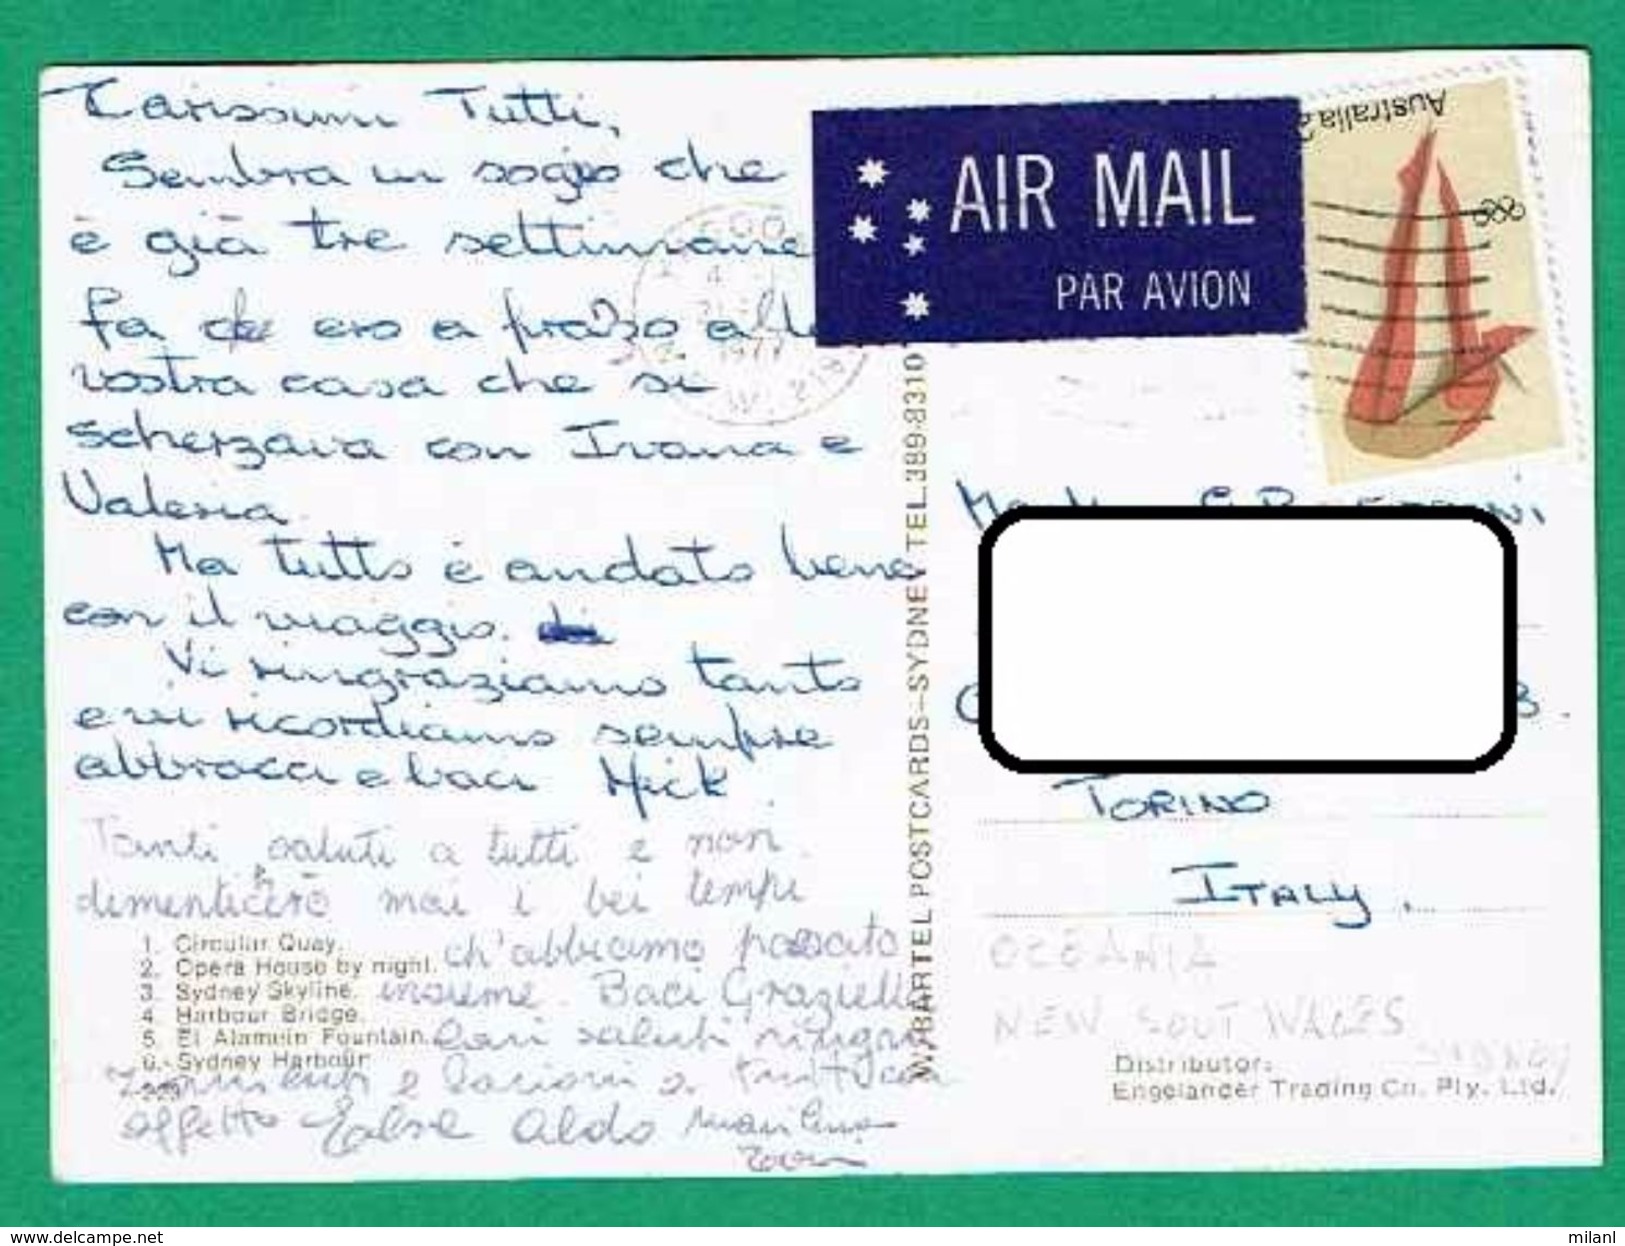 Carissimi Tutti,
Sembra un sogno che
è già tre settimane
fa che ero a pranzo alla
vostra casa che si
scherzava con Ivana e
Valeria.
Ma tutto è andato bene
con il viaggio.
Vi ringraziamo tanto
e vi ricordiamo sempre
abbracci e baci Mick
Tanti saluti a tutti e non
dimenticherò mai i bei tempi
ch'abbiamo passato
insieme. Baci Graziella
Cari saluti ringra
ziamenti e bacioni a tutti con
affetto Aldo
1. Circular Quay.
2. Opera House by night.
3. Sydney Skyline.
4. Harbour Bridge.
5. El Alamein Fountain.
6. Sydney Harbour
229
W.A. BARTEL POSTCARDS—SYDNEY TEL. 389-8310
1977
AIR MAIL
PAR AVION
Australia
TORINO
ITALY.
OCEANIA
NEW SOUT WALES
SYDNEY
Distributor:
Engelander Trading Co. Pty. Ltd.
www.delcampe.net
milanl